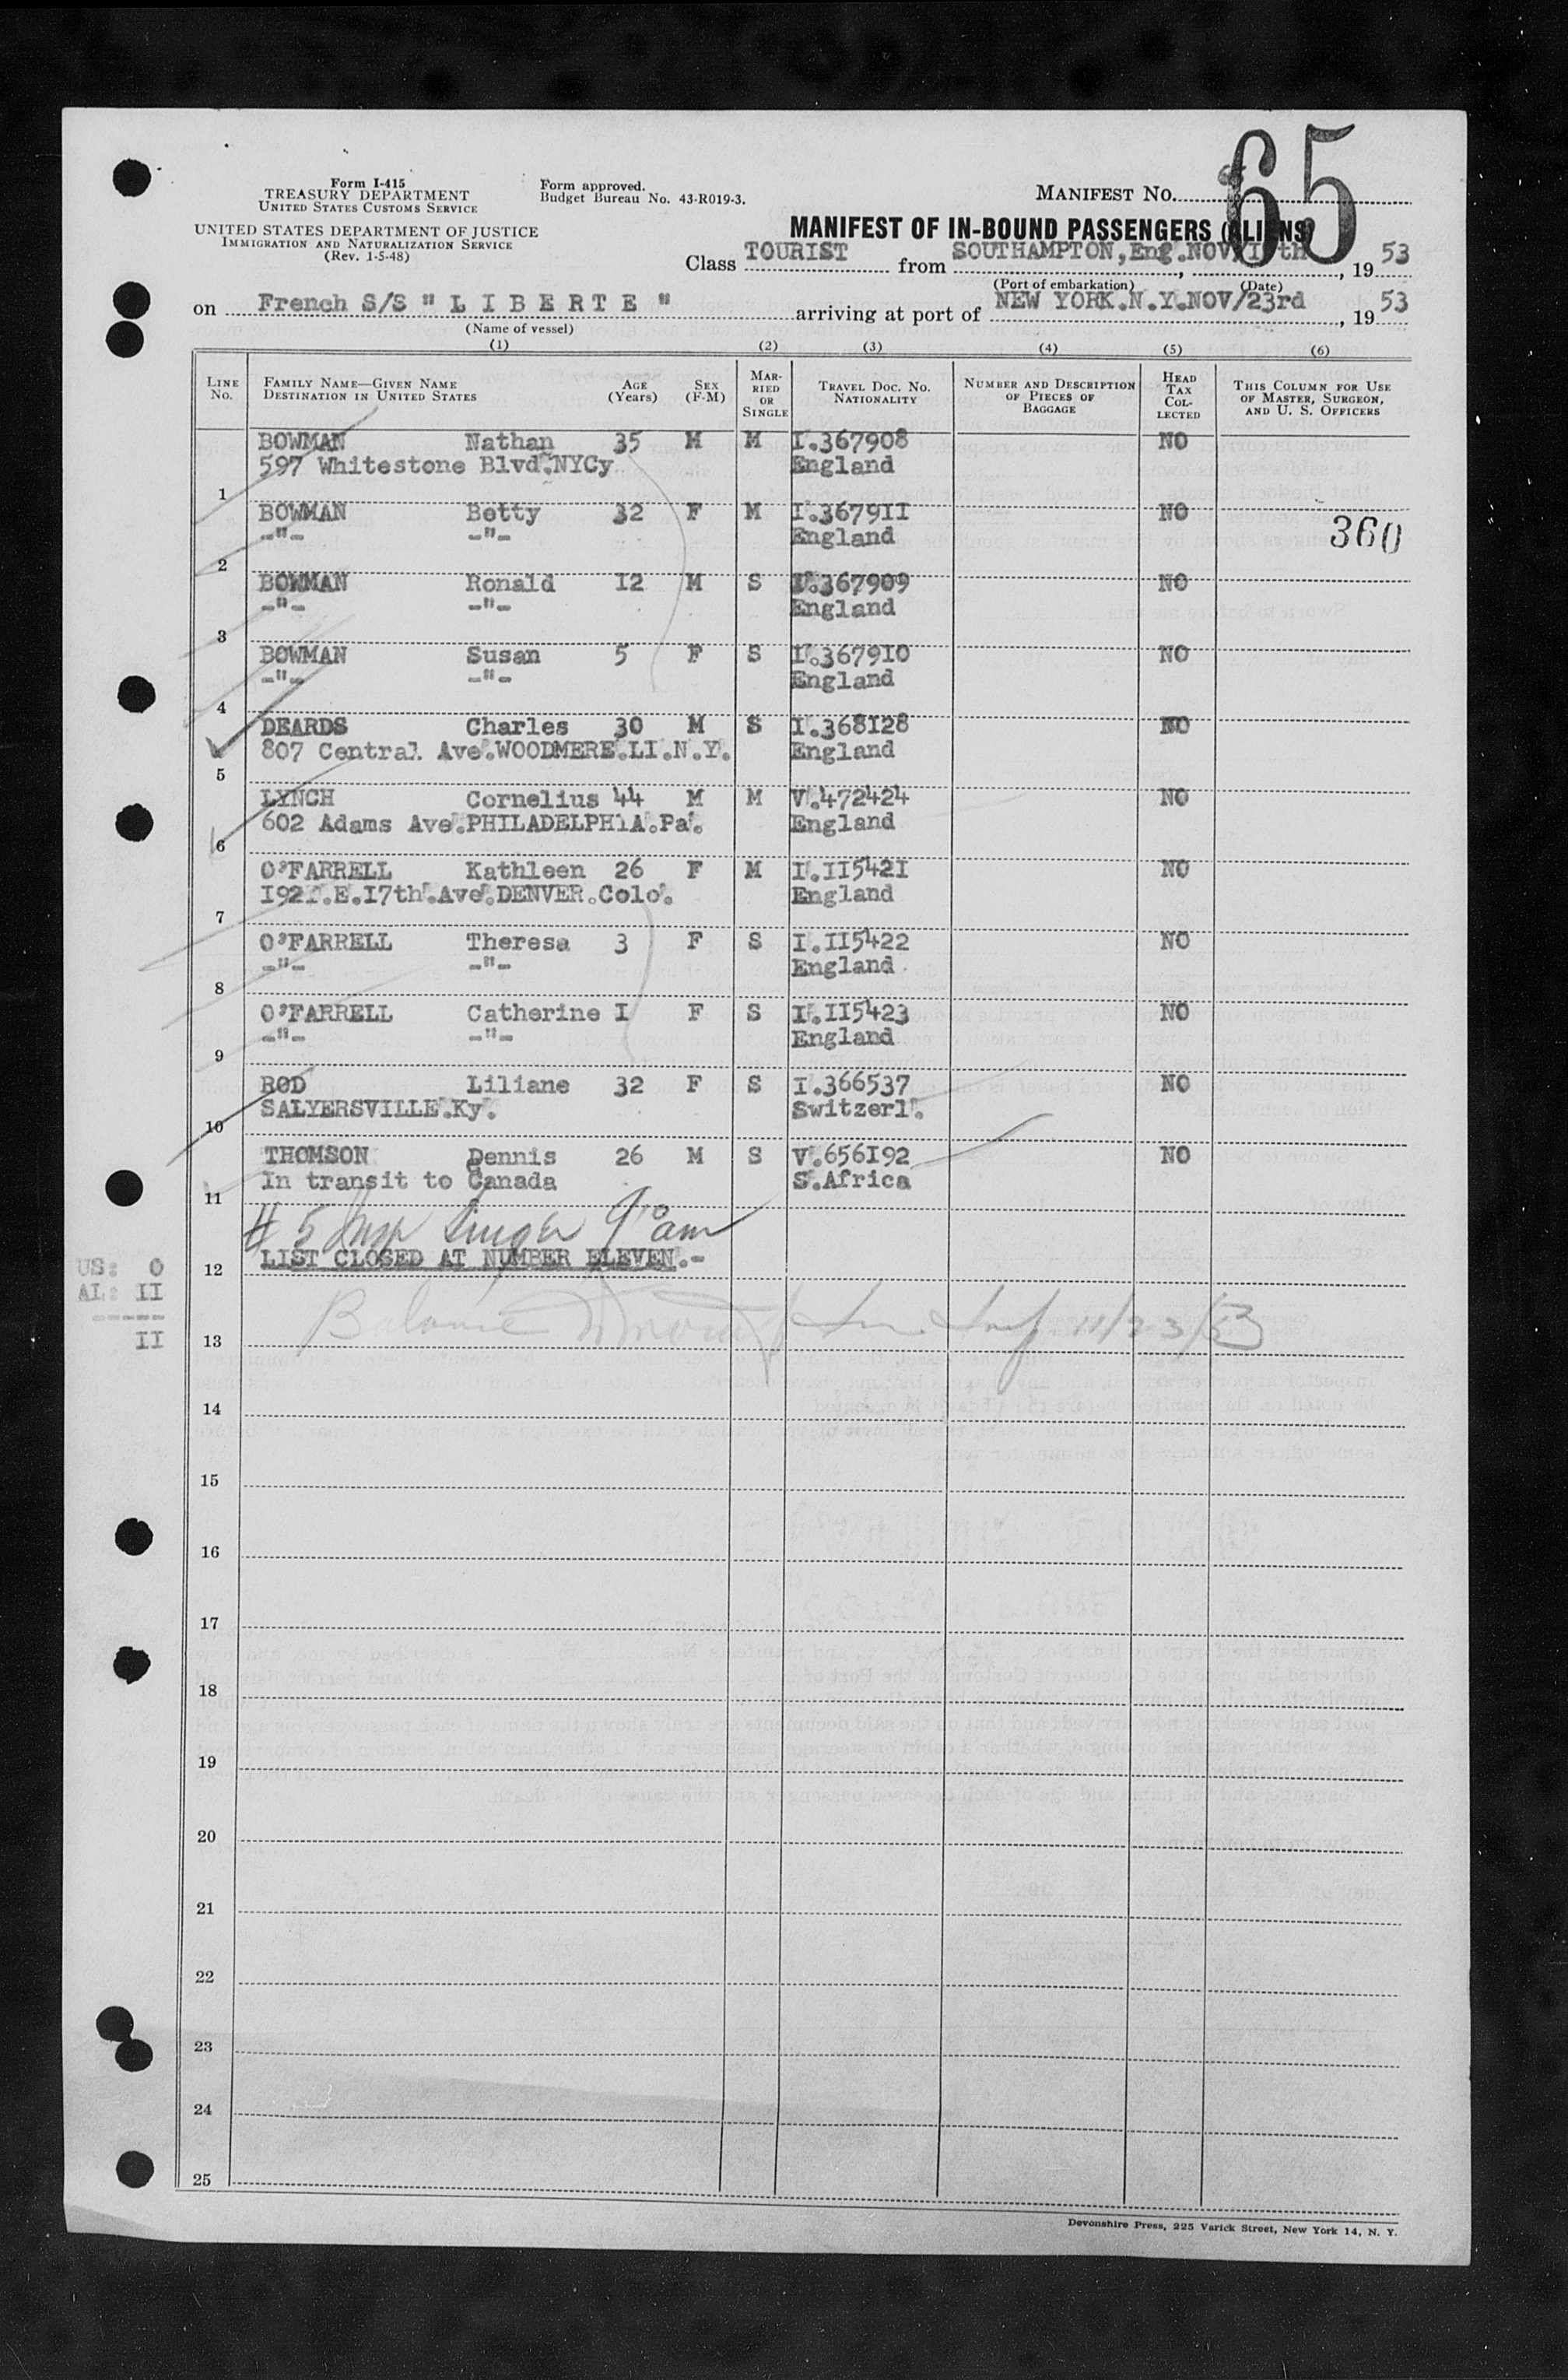 65
Form I-415
TREASURY DEPARTMENT
UNITED STATES CUSTOMS SERVICE
UNITED STATES DEPARTMENT OF JUSTICE
IMMIGRATION AND NATURALIZATION SERVICE
(Rev. 1-5-48)
Form approved.
Budget Bureau No. 43-R019-3.
MANIFEST NO.
MANIFEST OF IN-BOUND PASSENGERS (ALIENS)
Class TOURIST from SOUTHAMPTON,Eng.NOV/ , 19 53
(Port of embarkation) (Date)
on French S/S " L I B E R T E " arriving at port of NEW YORK.N.Y.NOV/23rd , 19 53
(Name of vessel)
(1) (2) (3) (4) (5) (6)
LINE No. FAMILY NAME—GIVEN NAME DESTINATION IN UNITED STATES AGE (Years) SEX (F-M) MARRIED OR SINGLE TRAVEL DOC. NO. NATIONALITY NUMBER AND DESCRIPTION OF PIECES OF BAGGAGE HEAD TAX COLLECTED THIS COLUMN FOR USE OF MASTER, SURGEON, AND U. S. OFFICERS
BOWMAN Nathan 35 M M I.367908 NO
597 Whitestone Blvd.NYCy England
1
BOWMAN Betty 32 F M I.3679II NO
-"- -"- England 360
2
BOWMAN Ronald I2 M S I.367909 NO
-"- -"- England
3
BOWMAN Susan 5 F S I.3679I0 NO
-"- -"- England
4
DEARDS Charles 30 M S I.368I28 NO
807 Central Ave.WOODMERE.LI.N.Y. England
5
LYNCH Cornelius 44 M M V.472424 NO
602 Adams Ave.PHILADELPHIA.Pa. England
6
O'FARRELL Kathleen 26 F M I.II542I NO
.E.I7th.Ave.DENVER.Colo. England
7
O'FARRELL Theresa 3 F S I.II5422 NO
-"- -"- England
8
O'FARRELL Catherine I F S I.II5423 NO
-"- -"- England
9
ROD Liliane 32 F S I.366537 NO
SALYERSVILLE.Ky. Switzerl.
10
THOMSON Dennis 26 M S V.656I92 NO
In transit to Canada S.Africa
11
# 5 Insp Singer 9 am
LIST CLOSED AT NUMBER ELEVEN.-
12
US: 0
AL: II
-----
II
11/23/53
13
14
15
16
17
18
19
20
21
22
23
24
25
Devonshire Press, 225 Varick Street, New York 14, N. Y.